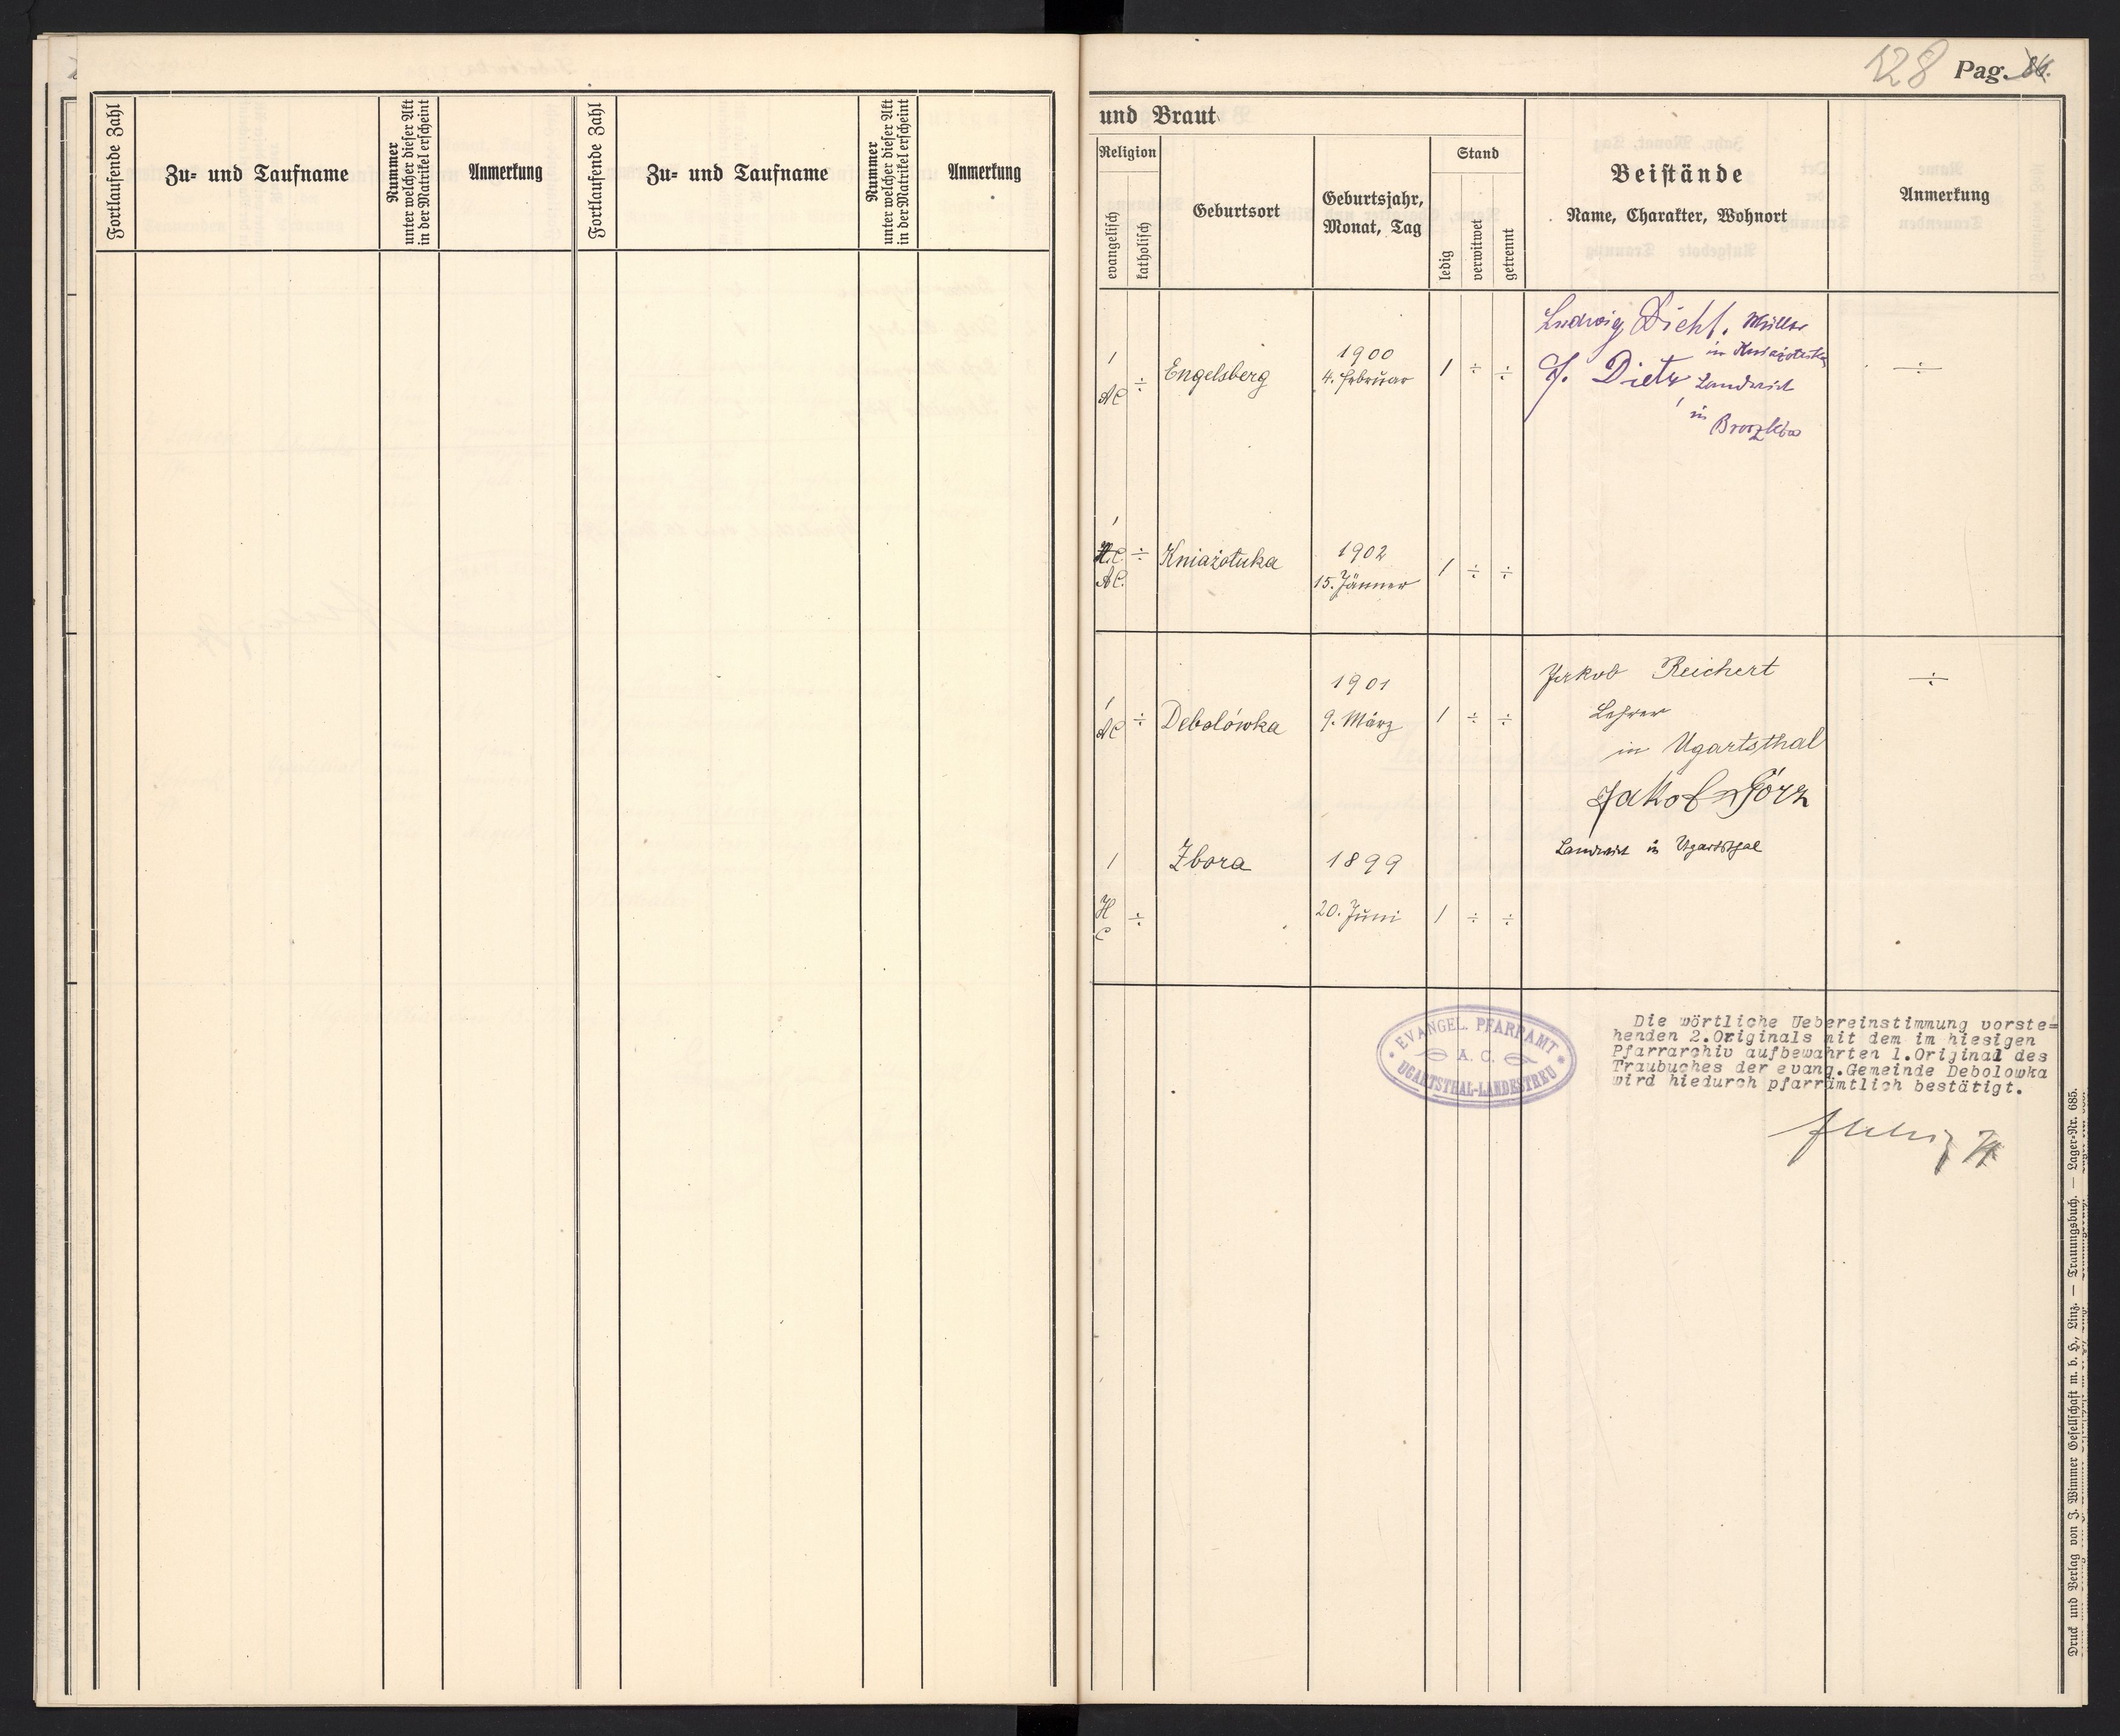 Fortlaufende Zahl
Zu- und Taufname
Nummer
unter welcher dieser Akt
in der Matrikel erscheint
Anmerkung
Fortlaufende Zahl
Zu- und Taufname
Nummer
unter welcher dieser Akt
in der Matrikel erscheint
Anmerkung
128 Pag. 86.
und Braut
Religion
evangelisch
katholisch
Geburtsort
Geburtsjahr,
Monat, Tag
Stand
ledig
verwitwet
getrennt
Beistände
Name, Charakter, Wohnort
Anmerkung
1
AC ÷
Engelsberg
1900
4. Februar
1 ÷ ÷
Ludwig Müller
in
J. Dietz Landwirt
in
÷
1
H.C. ÷
AC.
Kniażotuka
1902
15. Jänner
1 ÷ ÷
1
AC ÷
Debolówka
1901
9. März
1 ÷ ÷
Jakob Reichert
Lehrer
in Ugartsthal
Jakob Görz
Landwirt in Ugartsthal
÷
1
H
C ÷
Zbora
1899
20. Juni
1 ÷ ÷
EVANGEL. PFARRAMT
A. C.
UGARTSTHAL-LANDESTREU
Die wörtliche Uebereinstimmung vorste=
henden 2.Originals mit dem im hiesigen
Pfarrarchiv aufbewahrten 1.Original des
Traubuches der evang.Gemeinde Debolowka
wird hiedurch pfarrämtlich bestätigt.
Druck und Verlag von J. Wimmer Gesellschaft m. b. H., Linz. — Trauungsbuch. — Lager-Nr. 685.